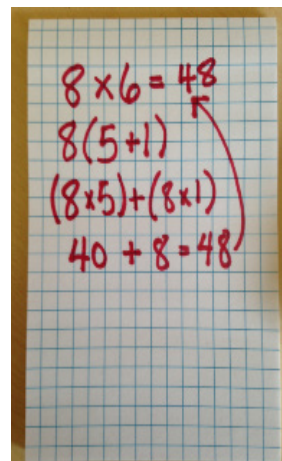 8 × 6 = 48
8(5+1)
(8×5)+(8×1)
40 + 8 = 48